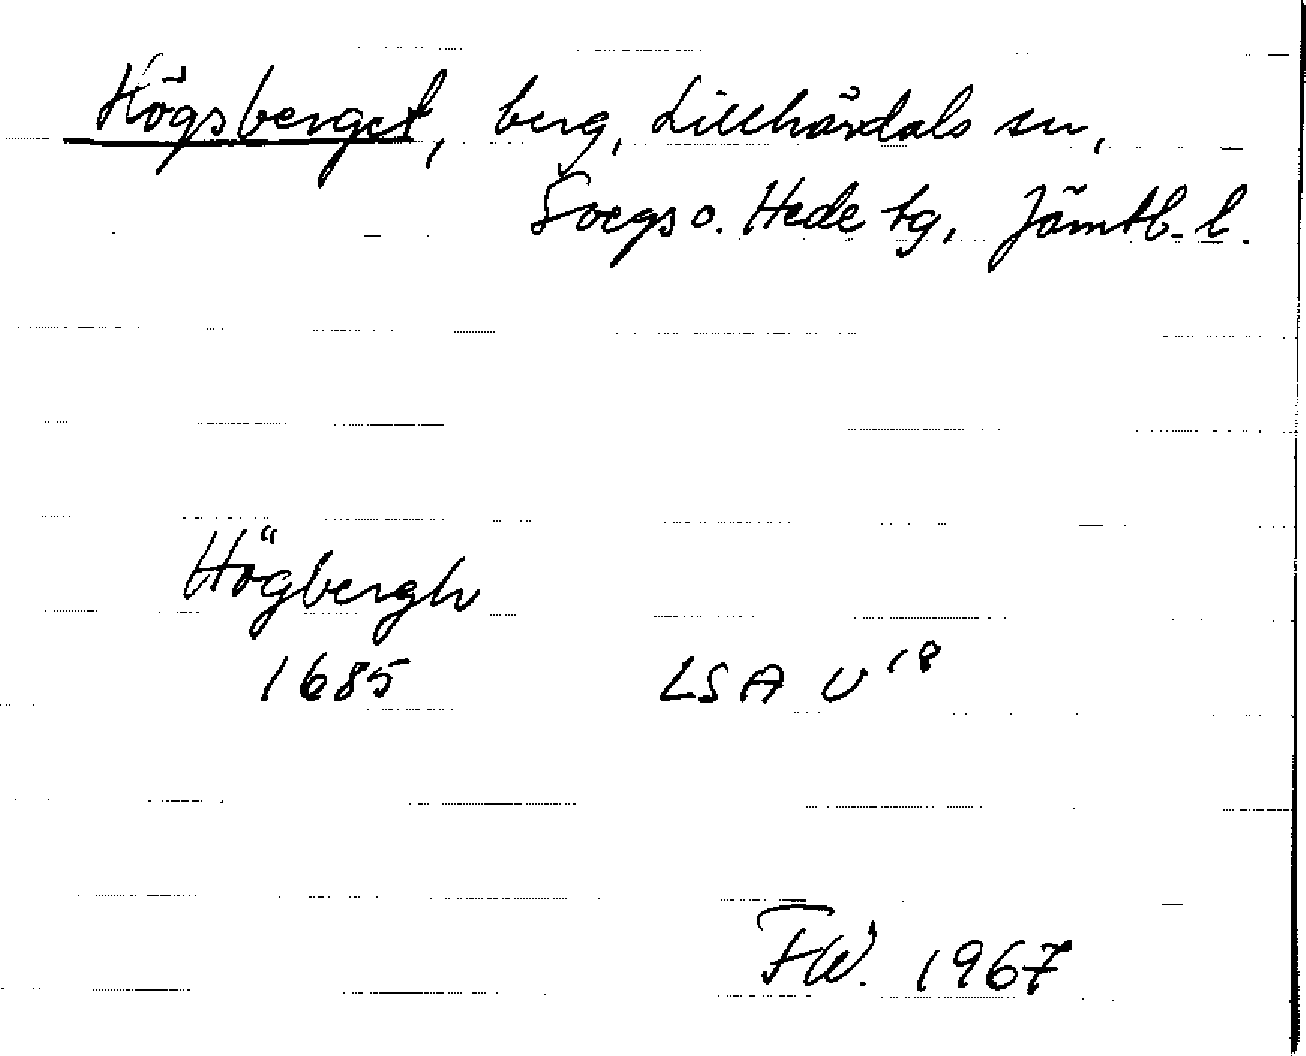 Högsberget, berg, Lillhärdals sn,
Svegs o. Hede tg, Jämtl. l.
Högbergh
1685 LSA U 18
FW. 1967